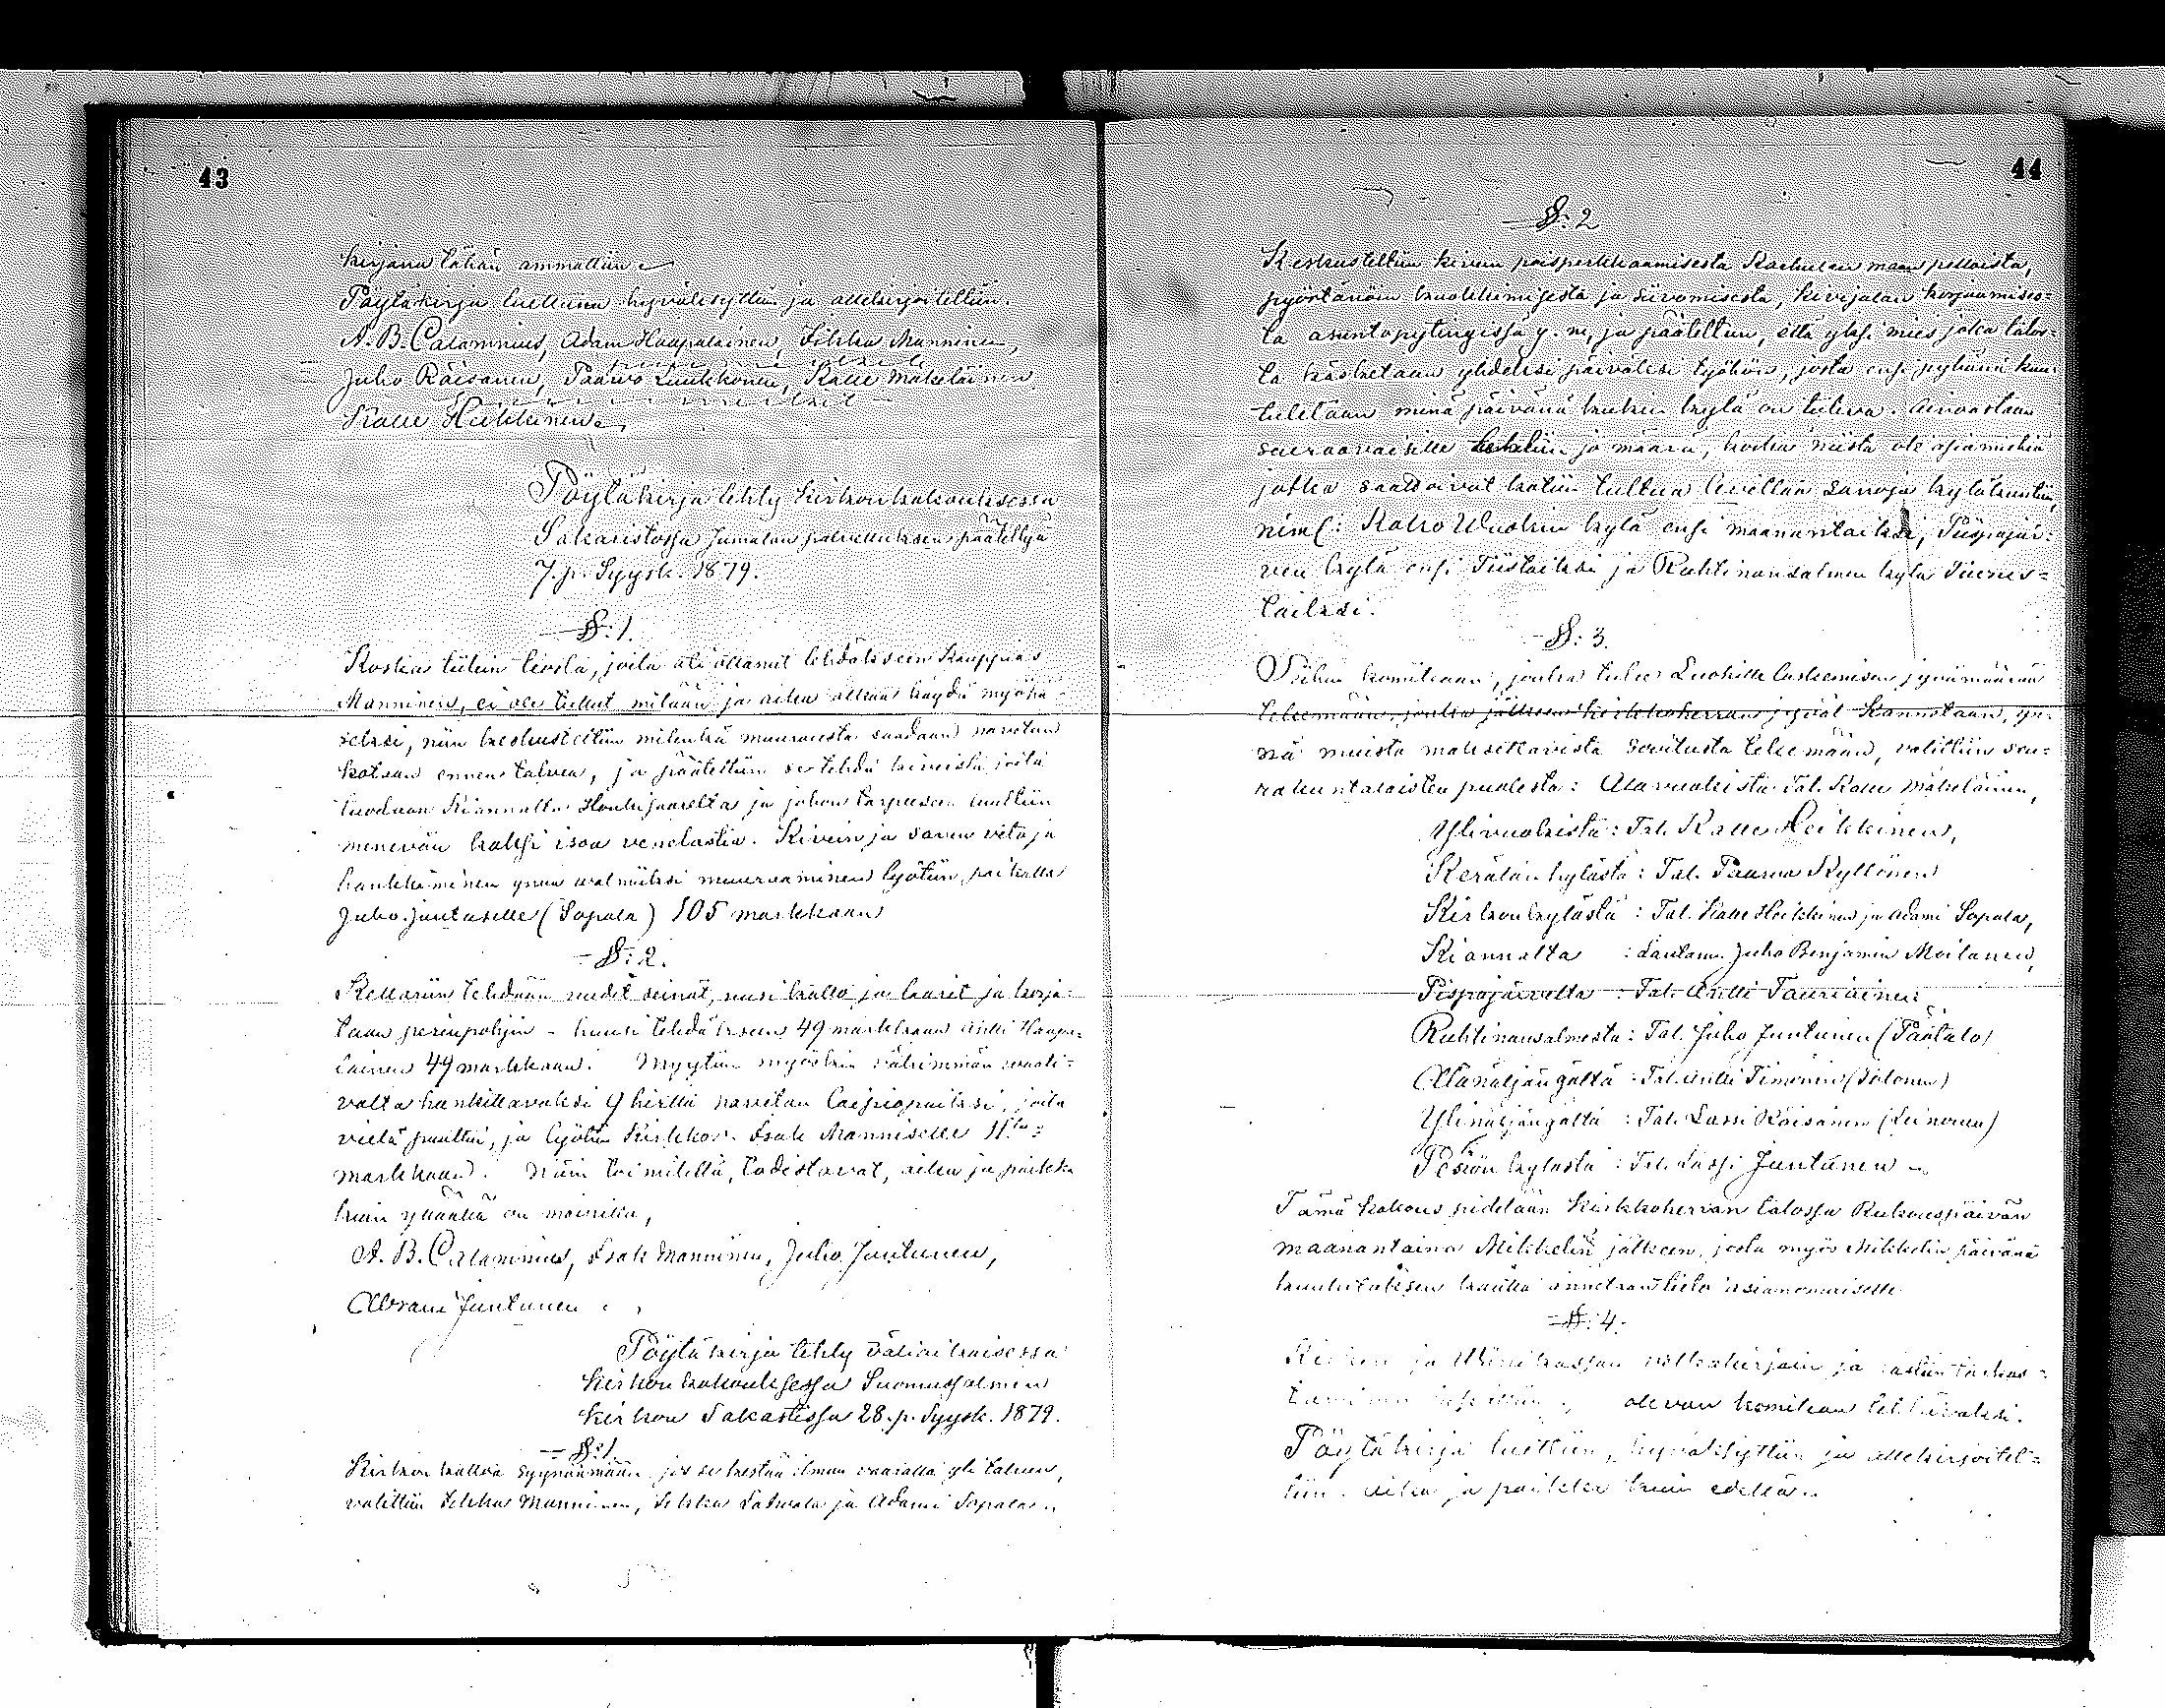 43
kirjana tähän ammattiin.
Pöytäkirja luettuna hyväksyttiin ja allekirjoitettiin.
A. B. Calamnius, Adam Haapalainen, Iikka Manninen,
Juho Räisänen, Paavo Luukkonen, Kalle Mäkeläinen
Kalle Heikkinen.
Pöytäkirja tehty Kirkonkokouksessa
Sakaristossa Jumalan palveluksen päätettyä
7. p. Syysk. 1879.
§: 1.
Koska tiilein teosta, joita oli ottanut tehdäkseen Kauppias
Manninen, ei ole tullut mitään ja aika alkaa käydä myöhä-
seksi, niin keskusteltiin minkä muurausta saadaan navetan
katvan ennen talvea, ja päätettiin se tehdä kivistä joita
tuodaan Kiannalta Houkujaarelta ja johon tarpeesen luultiin
menevän kaksi isoa venelastia. Kivein ja saven veto ja
hankkiminen ynnä valmiiksi muuraaminen lyötiin, paikalla
Juho Juntuselle (Sopala) 105 markkaan
§: 2.
Kellariin tehdään uudet seinät, uusi katto ja laarit ja korja-
taan perinpohjin - kuusi tehdäkseen 49 markkaan Antti Haapa-
lainen 49 markkaan. Myytiin myöskin vähimmän vaati-
valta hankittavaksi 9 hirttä navetan laipiopuiksi, joita
vielä puuttui, ja lyötiin Kirkkov. Isak Manniselle 11ta
markkaan. Näin toimitettu, todistavat, aika ja paikka
kuin ylhäällä on mainittu,
A. B. Calamnius, Isak Manninen, Juho Juntunen,
Abram Juntunen
Pöytäkirja tehty väliaikaisessa
Kirkon kokouksessa Suomussalmen
Kirkon Sakastissa 28. p. Syysk. 1879.
§: 1.
Kirkon kattoa syynäämään, jos se kestää ilman vaaratta yli talven,
valittiin Iikka Manninen, Iikka Lahvala ja Adami Sopala.
44
§: 2
Keskusteltiin kivein poisperkkaamisesta Karhulan maan pelloista,
pyörtänöin kuokkimisesta ja siivomisesta, kivijalan korjaamises-
ta asuntopytingissä y. m, ja päätettiin, että yksi mies joka talos-
ta käsketään yhdeksi päiväksi työhön, josta ensi pyhänä kuu-
lutetaan minä päivänä kukin kylä on tuleva. Ainoastaan
seuraavaiselle tehtiin jo määrä, koska niistä oli asiamiehiä
jotka saattoivat kotiin tultua levittää sanoja kyläkuntiin,
niml: Koko Vuokin kylä ensi maanantaiksi, Piispajär-
ven kylä ensi Tiistaiksi ja Ruhtinansalmen kylä Tuores-
taiksi.
§: 3.
Siihen komiteaan, jonka tulee Luokille laskemisen jyvämäärän
tekemään, jonka jälkeen kirkkoherran jyvät kannetaan, yn-
nä muista maksettavista selitusta tekemään, valittiin seu-
rakuntalaisten puolesta: Alavuokista Tal. Kalle Mäkeläinen,
Ylivuokista: Tal. Kalle Heikkinen,
Kerälän kylästä: Tal. Paavo Kyllönen
Kirkonkylästä: Tal. Kalle Heikkinen ja Adami Sopala,
Kiannalta: Lautam. Juho Benjamin Moilanen,
Pispajärveltä: Tal. Antti Tauriainen
Ruhtinansalmesta: Tal. Juho Juntunen (Päätalo)
Alanäljängältä: Tal. Antti Timonen (Tolonen)
Ylinäljängältä: Tal. Lassi Räisänen (Leinonen)
Pesiön kylästä: Tal. Lassi Juntunen
Tämä kokous pidetään Kirkkoherran talossa Rukouspäivän
maanantaina Mikkelin jälkeen, josta myös Mikkelin päivänä
kuulutuksen kautta annetaan tieto asianomaisille.
§: 4.
Kirkon ja Viinikassan velkakirjain ja
olevan komitean tehtäväksi.
Pöytäkirja luettiin, hyväksyttiin ja allekirjoitet-
tiin. Aika ja paikka kuin edellä.